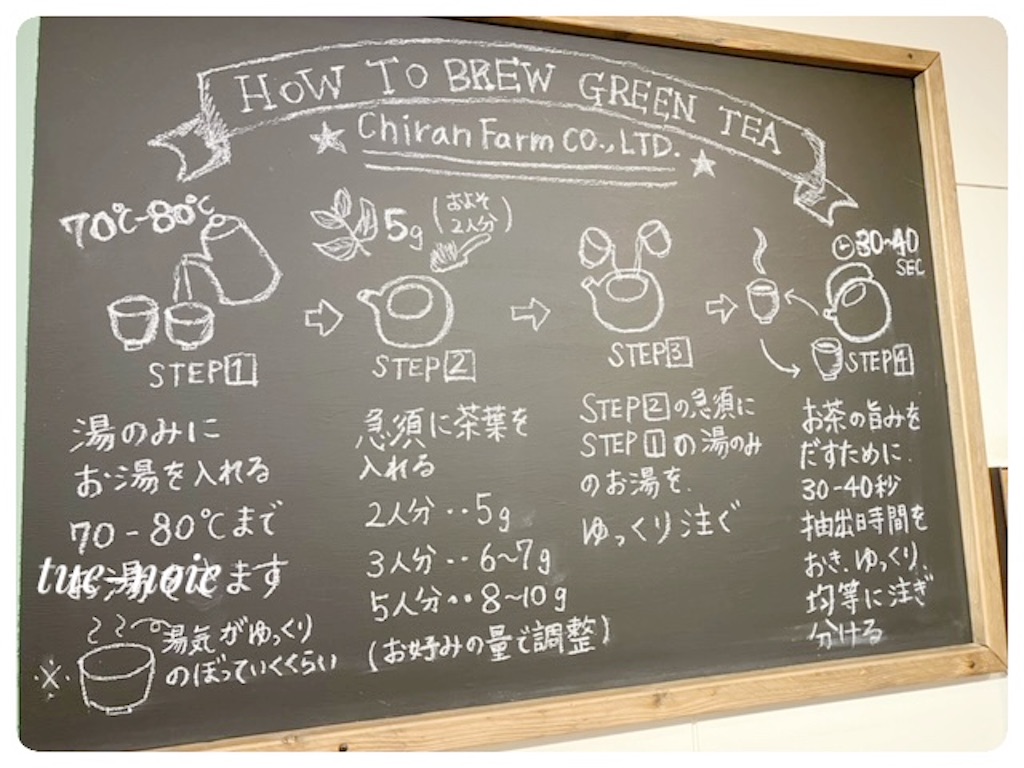 HOW TO BREW GREEN TEA
Chiran Farm CO., LTD.
70℃-80℃
STEP1
湯のみに
お湯を入れる
70-80℃まで
お湯をさます
tuc-noie
※
湯気がゆっくり
のぼっていくくらい
5g (およそ
2人分)
STEP2
急須に茶葉を
入れる
2人分‥5g
3人分‥6~7g
5人分‥8~10g
(お好みの量で調整)
STEP3
STEP2の急須に
STEP1の湯のみ
のお湯を、
ゆっくり注ぐ
30~40
SEC
STEP4
お茶の旨みを
だすために、
30-40秒
抽出時間を
おき、ゆっくり、
均等に注ぎ
分ける